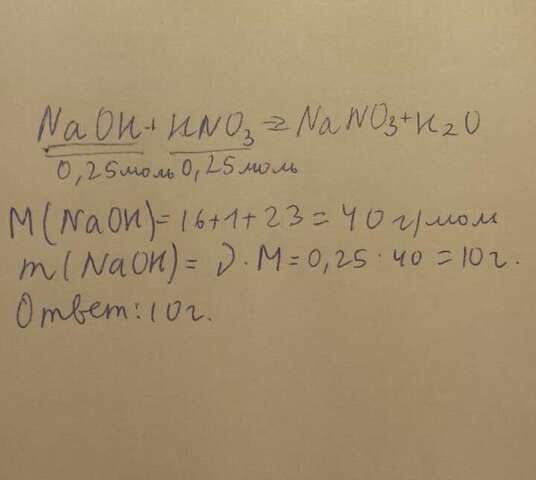 NaOH + HNO₃ => NaNO₃ + H₂O
0,25моль 0,25моль
M(NaOH) = 16+1+23 = 40 г/мол
m(NaOH) = ν · M = 0,25 · 40 = 10 г.
Ответ: 10г.